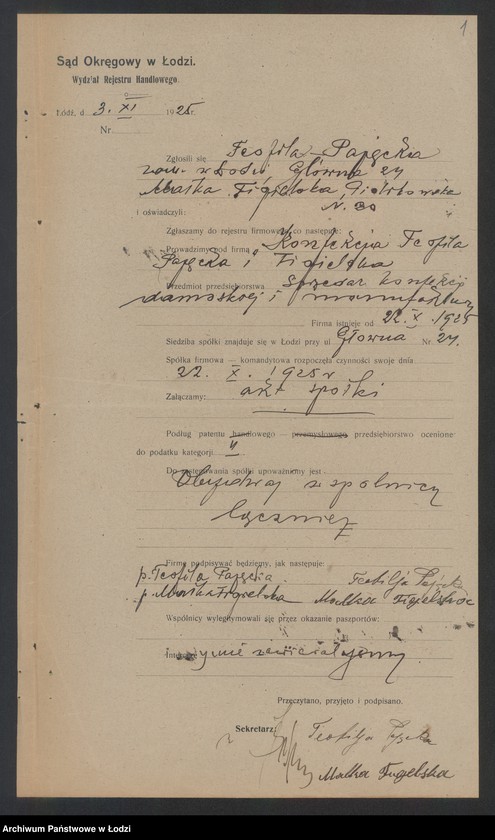 1
Sąd Okręgowy w Łodzi.
Wydział Rejestru Handlowego.
Łódź, d. 3. XI 1925 r.
Nr.
Zgłosili się Teofila Pajęcka
zam. w Łodzi, Główna 24
Małka Figielska, Piotrkowska
N. 30
i oświadczyli:
Zgłaszamy do rejestru firmowego co następuje:
Prowadzimy pod firmą „Konfekcja Teofila
Pajęcka i Figielska
Przedmiot przedsiębiorstwa sprzedaż konfekcji
damskiej i manufaktury
Firma istnieje od 22. X. 1925
Siedziba spółki znajduje się w Łodzi przy ul Główna Nr. 24.
Spółka firmowa — komandytowa rozpoczęła czynności swoje dnia
22. X. 1925 r.
Załączamy: akt spółki
Podług patentu handlowego — przemysłowego przedsiębiorstwo ocenione
do podatku kategorji II
Do zastępowania spółki upoważniony jest
Obydwaj wspólnicy
łącznie
Firmę podpisywać będziemy, jak następuje:
p. Teofila Pajęcka Teofilja Pajęcka
p. Małka Figielska Małka Figielska
Wspólnicy wylegitymowali się przez okazanie paszportów:
Przeczytano, przyjęto i podpisano.
Sekretarz: Teofilja Pajęcka
Małka Figelska
Archiwum Państwowe w Łodzi